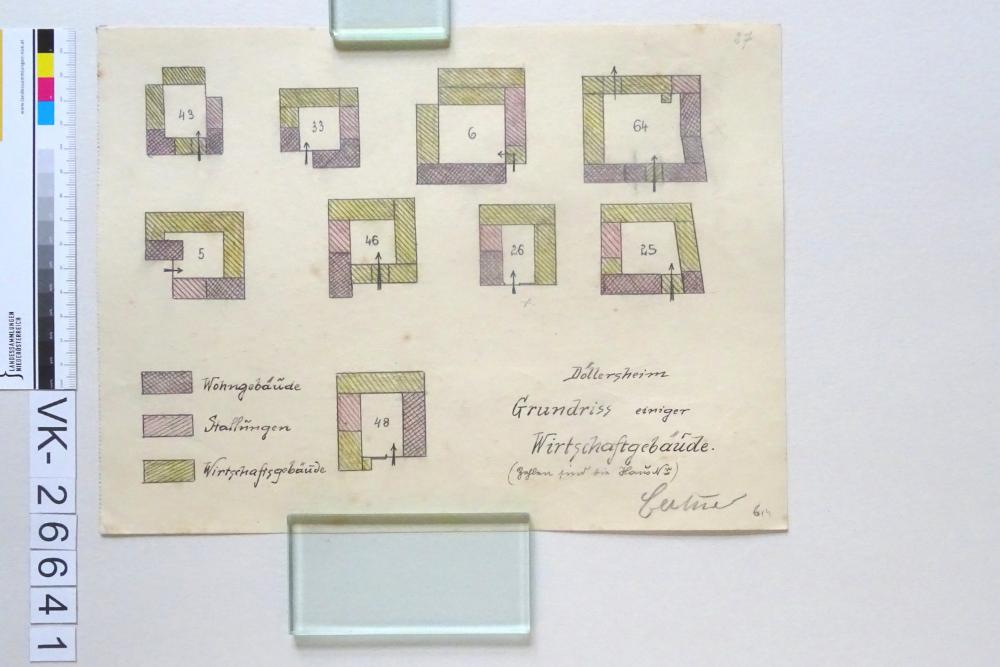 27
43
33
6
64
5
46
26
25
48
Wohngebäude
Stallungen
Wirtschaftsgebäude
Döllersheim
Grundriss einiger
Wirtschaftgebäude.
(Zahlen sind die Haus №)
LANDESSAMMLUNGEN
NIEDERÖSTERREICH
VK-26641